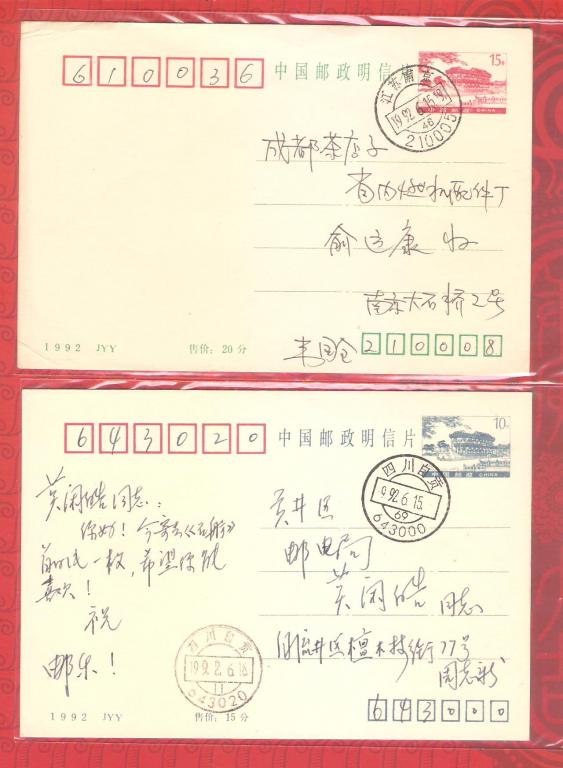 610036
中国邮政明信片
15分
中国邮政 CHINA
江苏南京
1992.6.15.18
46
210005
成都茶店子
省内燃机配件厂
俞运康 收
南京大石桥2号
210008
1992 JYY
售价:20分
643020
中国邮政明信片
10分
中国邮政 CHINA
四川自贡
1992.6.15.
69
643000
黄闲皓同志:
你好!今寄去《石舫》
首日
一枚,希望你能
喜欢!
祝
邮乐!
贡井区
邮电局
黄闲皓 同志
自流井区檀木林街77号
周志新
643000
四川自贡
1992.6.16
11
643020
1992 JYY
售价:15分